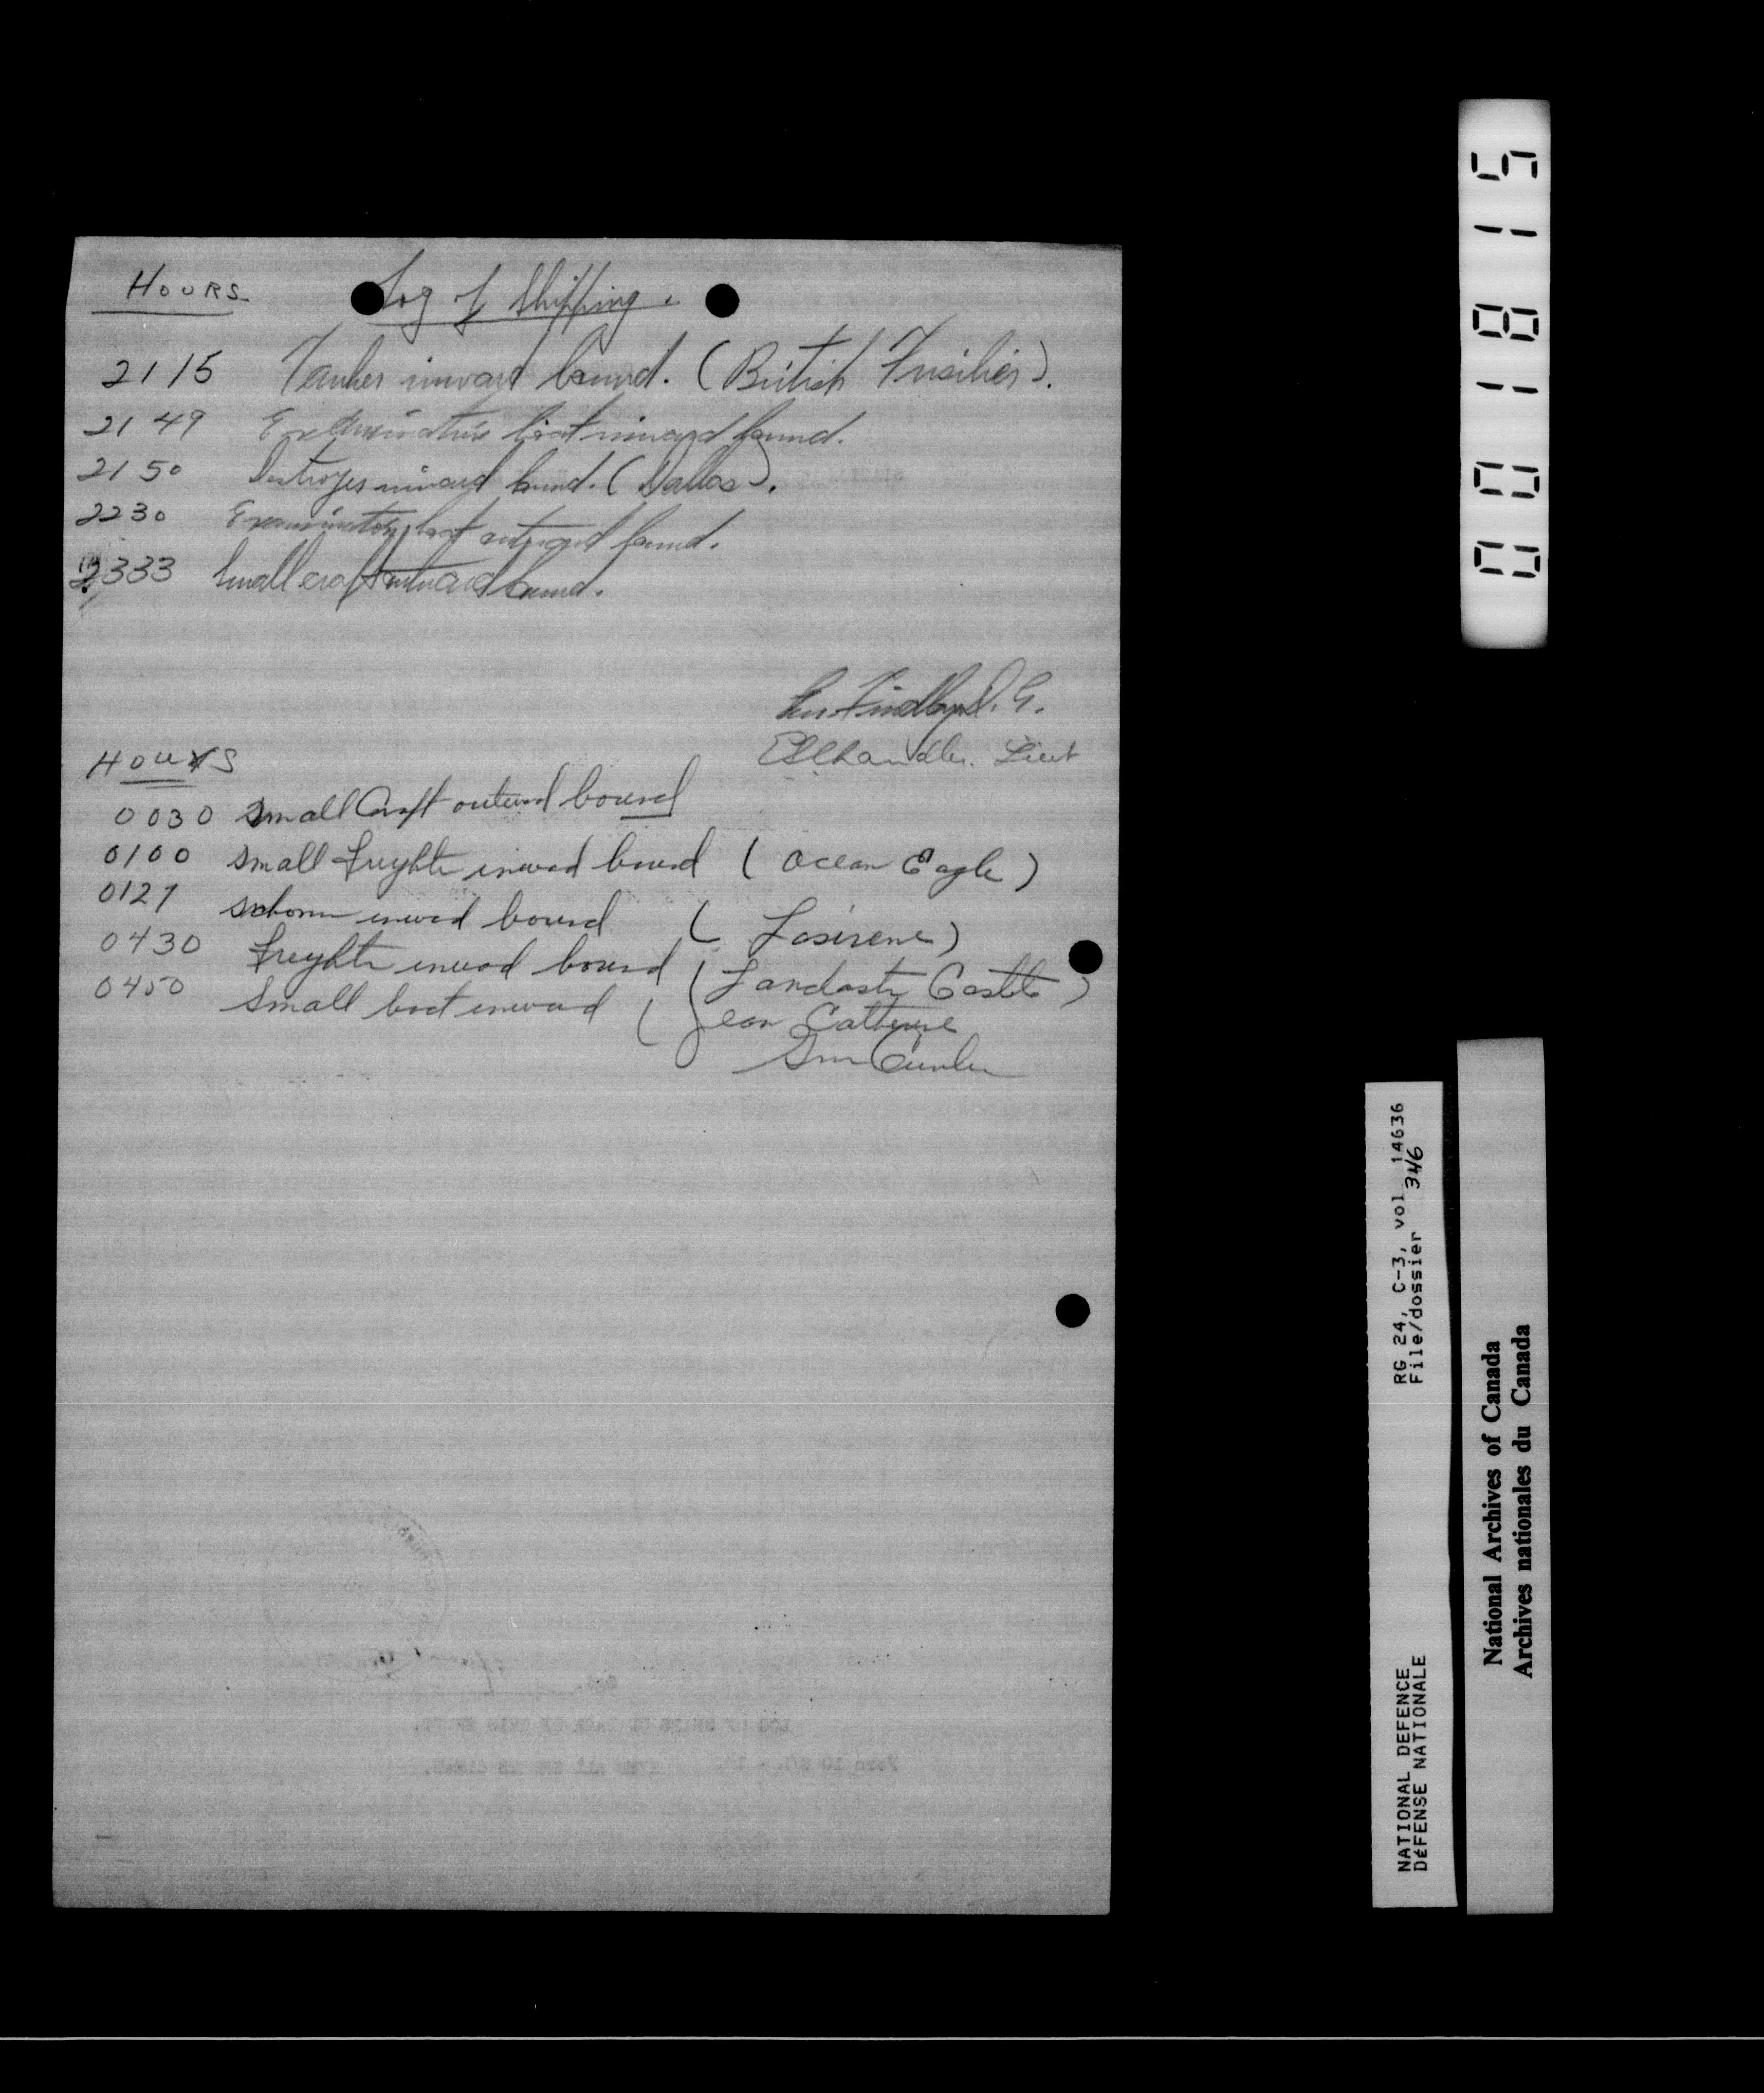 HOURS Log of Shipping.
2115 Tanker inward bound. (British Fusilier).
2149 Examination boat inward bound.
2150 Destroyer inward bound. (Dallas).
2230 Examination boat outward bound.
2333 Small craft outward bound.
Findlay
Chandler. Lieut
HOURS
0030 small Craft outward bound
0100 small freighter inward bound (Ocean Eagle)
0127 inward bound (
0430 freighter inward bound ( Castle)
0450 Small boat inward (Jean
001815
RG 24, C-3, vol 14636
File/dossier 346
NATIONAL DEFENCE
DÉFENSE NATIONALE
National Archives of Canada
Archives nationales du Canada